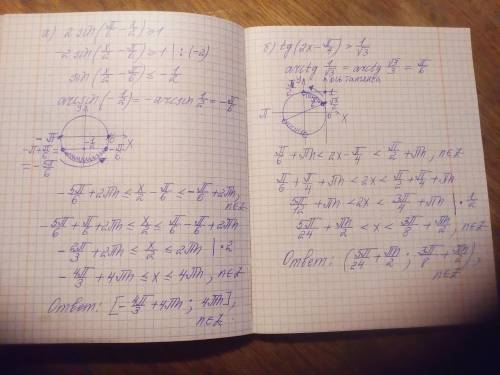 а) 2 sin(π/6 - x/2) ≥ 1
-2 sin(x/2 - π/6) ≥ 1 | : (-2)
sin(x/2 - π/6) ≤ -1/2
arcsin(-1/2) = -arcsin 1/2 = -π/6
y
-π
0
x
-1/2
-π+π/6
-π/6
= -5π/6
-5π/6 + 2πn ≤ x/2 - π/6 ≤ -π/6 + 2πn, n∈Z
-5π/6 + π/6 + 2πn ≤ x/2 ≤ π/6 - π/6 + 2πn
-2π/3 + 2πn ≤ x/2 ≤ 2πn | · 2
-4π/3 + 4πn ≤ x ≤ 4πn, n∈Z
Ответ: [-4π/3 + 4πn; 4πn], n∈Z.
б) tg(2x - π/4) > 1/√3
arctg 1/√3 = arctg √3/3 = π/6
y
ось тангенса
√3/3
π
0
x
π/6 + πn < 2x - π/4 < π/2 + πn, n∈Z
π/6 + π/4 + πn < 2x < π/2 + π/4 + πn
5π/12 + πn < 2x < 3π/4 + πn | · 1/2
5π/24 + πn/2 < x < 3π/8 + πn/2, n∈Z
Ответ: (5π/24 + πn/2; 3π/8 + πn/2), n∈Z